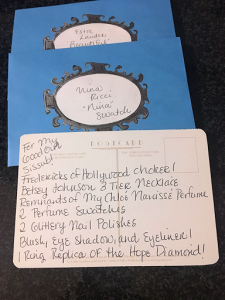 Este
Lauder
Beautiful
Nina
Ricci
"Nina"
Swatch
POSTCARD
For My
Good Old
Sissy!
Fredericks of Hollywood choker!
Betsey Johnson 3 Tier Necklace
Remnants of My Chloé Narcisse Perfume
2 Perfume Swatches
2 Glittery Nail Polishes
Blush, Eye Shadow, and Eyeliner!
1 Ring Replica Of the Hope Diamond!